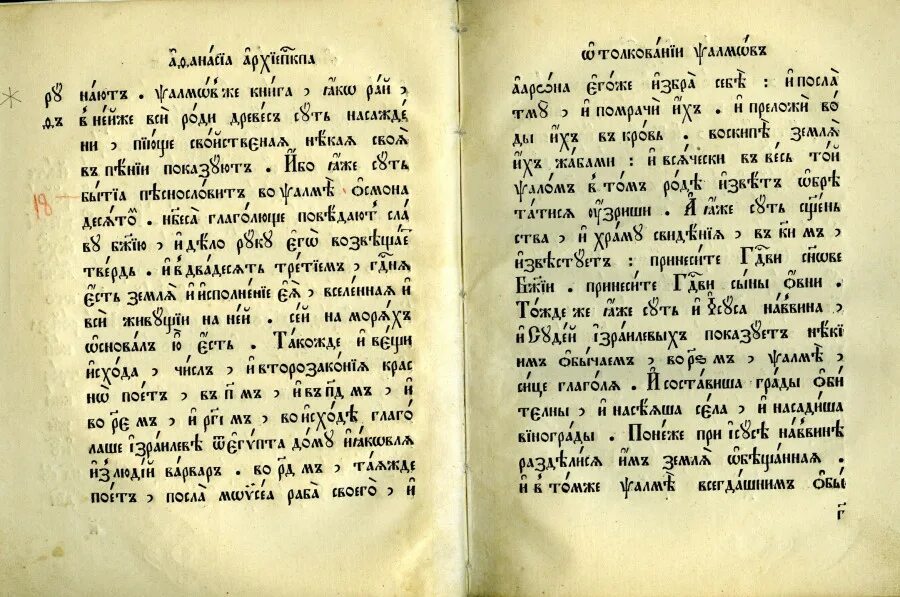 а҆фана́сїа а҆рхїепⷭ҇кпа
ну҆ на́ютъ . ѱалмѡ́в же кни́га , ꙗ҆́кѡ ра́й ,
в не́йже всѝ ро́ди древе́съ сꙋ́ть насажде
ни , пїю́ще сво́йственая нѣ́кая своѧ̀
въ пѣ́нїи показꙋ́ютъ . И҆́бо ꙗ҆́же сꙋ́ть
18
бытїа̀ пѣснослови́тъ во ѱалмѣ̀ ѻ҆смона
деся́тоⷨ . нб҃еса̀ глаго́люще повѣ́даютъ сла́
вꙋ бж҃їю , и҆ дѣ́ло рꙋкꙋ̀ є҆гѡ̀ возвѣща́етъ
тве́рдь . и҆ в два́десять тре́тїемъ , гдⷭ҇ня
є҆́сть землѧ̀ и҆ и҆сполне́нїе є҆ѧ̀ , вселе́нная и҆
всѝ живꙋ́щїи на не́й . се́й на моря́хъ
ѡ҆снова́лъ ю҆̀ є҆́сть . Та́кожде и҆ ве́щи
и҆схо́да , чи́слъ , и҆ второзако́нїя крас
нѡ̀ пое́тъ , въ п҃ı мъ , и҆ въ п҃д мъ , и҆
во р҃е мъ , и҆ р҃гı мъ , во и҆схо́дѣ глаго́
лаше і҆зра́илевѣ ѿ є҆гѵ́пта до́мꙋ и҆а́ковля
и҆з люді́й ва́рвар . во р҃д мъ , та́яжде
пое́тъ , посла̀ мѡѷсе́а раба̀ своего̀ , и҆
ѡ҆ толкова́нїи ѱалмѡ́въ
а҆арѡ́на є҆го́же и҆збра̀ себѣ̀ : и҆ посла̀
тмꙋ̀ , и҆ помрачѝ и҆́хъ . и҆ преложѝ во́
ды и҆́хъ въ кро́вь . воскипѣ̀ землѧ̀
и҆́хъ жа́бами : и҆ вся́чески въ ве́сь то́й
ѱало́мъ в то́мъ ро́дѣ и҆звѣ́тъ ѡ҆брѣ
та́тися ᲂу҆́зриши . А҆ ꙗ҆́же сꙋ́ть сщ҃е́нь
ства , и҆ хра́мꙋ свидѣ́нїя , въ к҃и мъ ,
и҆звѣстꙋ́етъ : принеси́те гдⷭ҇ви сн҃ове
бж҃їи . принеси́те гдⷭ҇ви сы́ны ѻ҆́вни .
То́жде же ꙗ҆́же сꙋ́ть и҆ і҆сꙋ́са наѵ́вина ,
и҆ Сꙋде́й і҆зра́илевыхъ показꙋ́етъ нѣ́кі
имъ ѻ҆бы́чаемъ , во р҃ѕ мъ , ѱалмѣ̀ ,
си́це глаго́ля . И҆ соста́виша гра́ды ѻ҆би́
телны , и҆ насѣ́яша се́ла , и҆ насади́ша
вїногра́ды . Поне́же при і҆сꙋ́сѣ наѵ́винѣ
раздѣли́ся и҆̀мъ землѧ̀ ѡ҆бѣща́нная .
и҆ в то́мже ѱалмѣ̀ всегда́шнимъ ѻ҆бы́
г҃